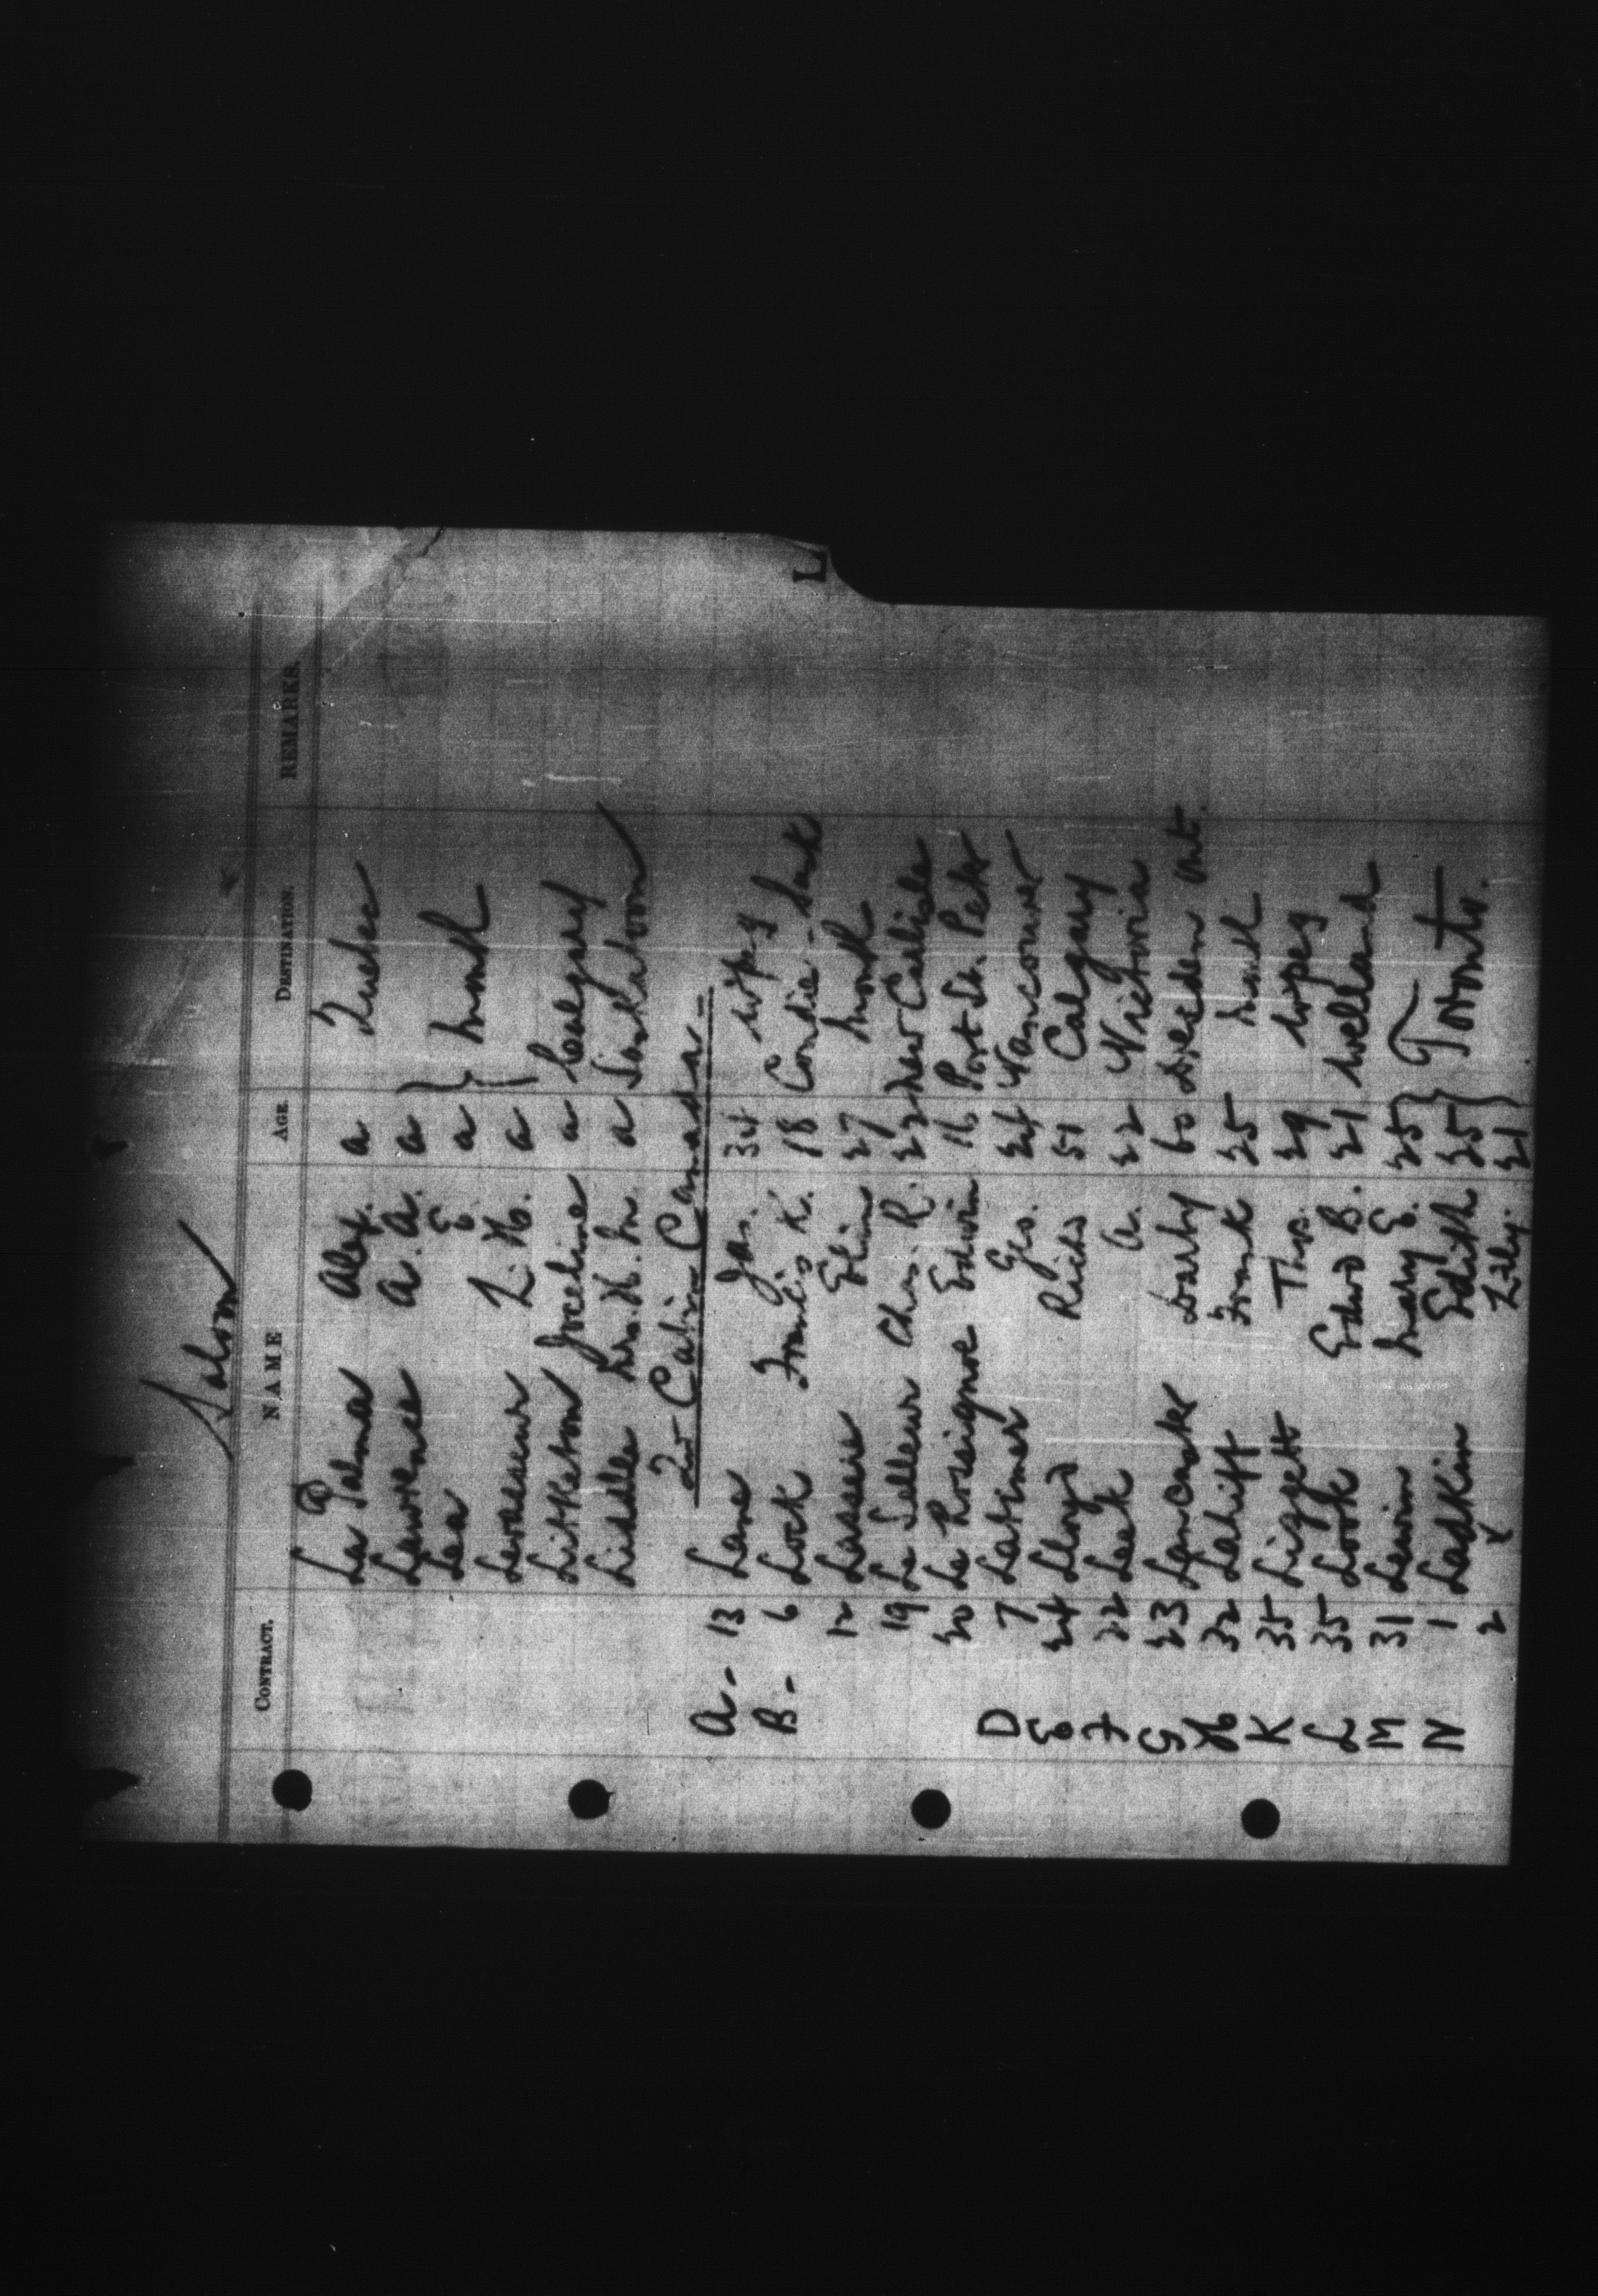 Saloon
CONTRACT. NAME AGE DESTINATION. REMARKS.
La Palma Alex. a Quebec
Lawrence A. A. a
Lea E a Montl
Levasseur L. H. a
Littleton Joceline a Calgary
Liddle Mrs. H. M. a Saskatoon
2nd Cabin Canada
L
A - 13 Lane Jas. 34 Wpg
B - 6 Lock Francis K. 18 Condie - Sask
12 Lassie Elin 27 Montl
19 Le Selleur Chs. R. 22 New Carlisle
20 Le Rossignoe Edwin 16 Port St. Pete
D 7 Latimer Geo. 24 Vancouver
E 24 Lloyd Richd 51 Calgary
F 22 Leek A. 22 Victoria
G 23 Lancaster Darby 60 Dresden Ont.
H 32 Lahiff Frank 25 Montl
K 35 Liggett Thos. 29 Wpeg
L 35 Look Edwd B. 21 Welland
M 31 Lewin Mary E. 25
N 1 Ladkin Edith 25 Toronto.
2 Lily. 21